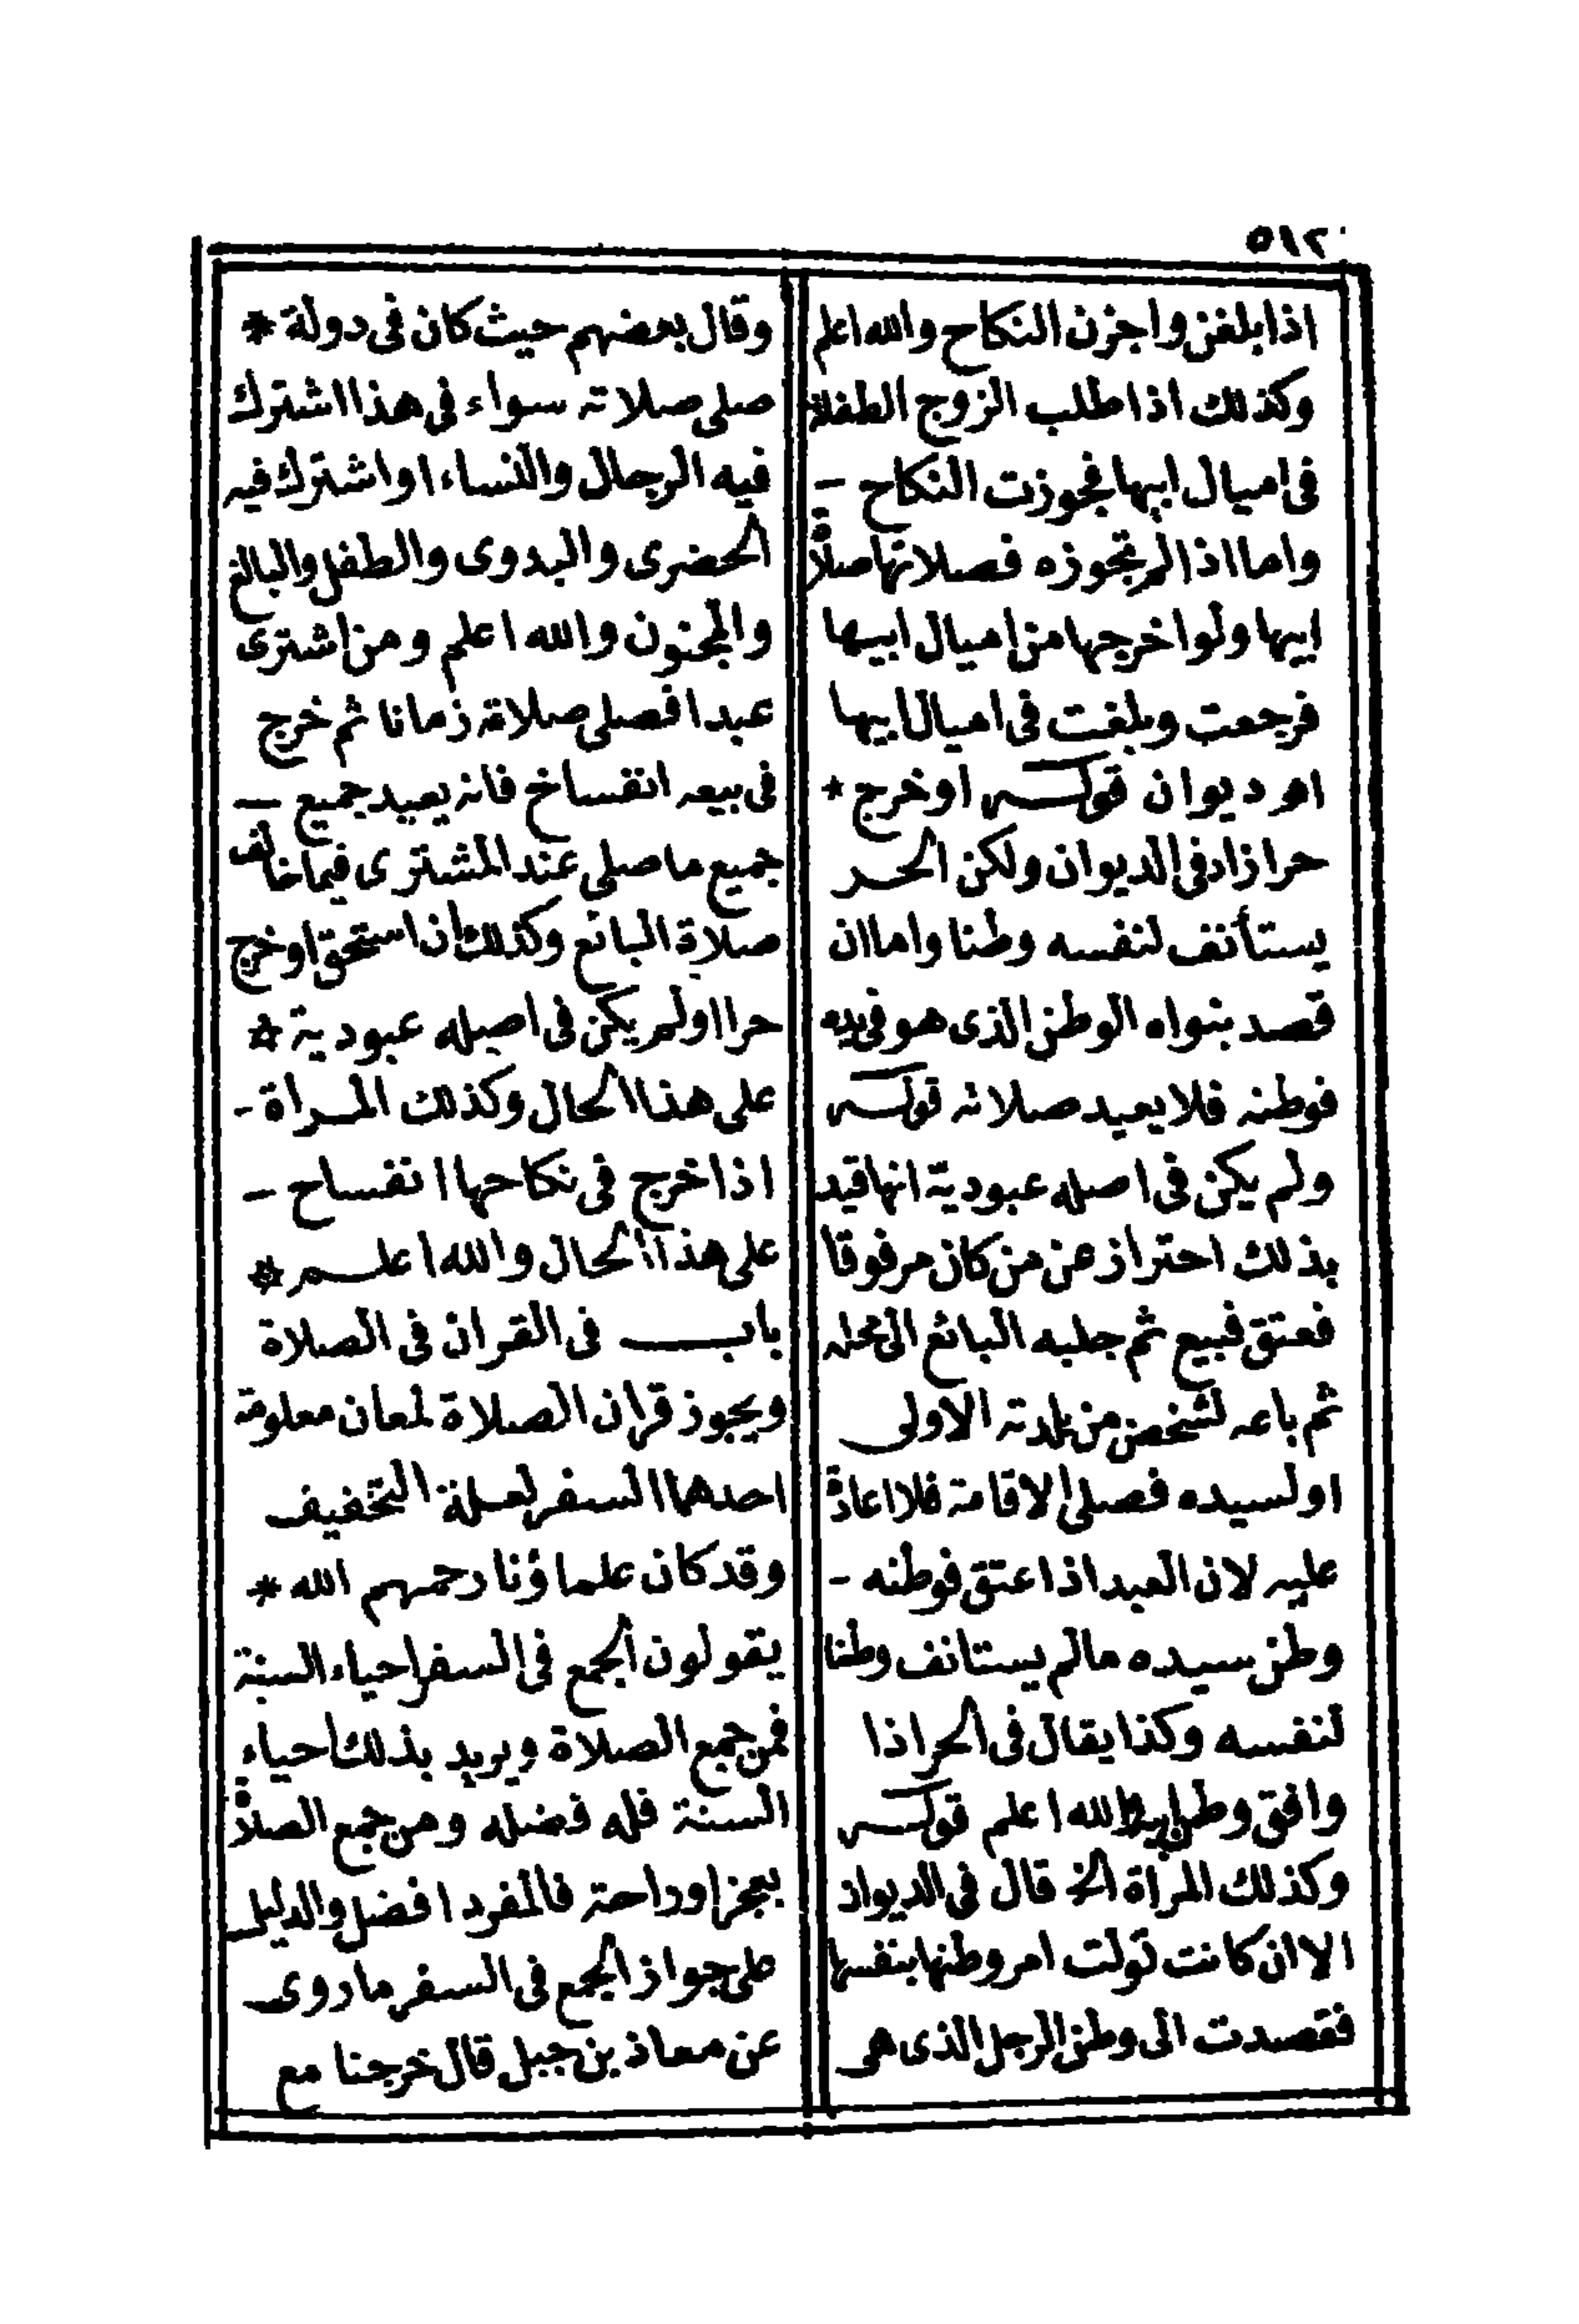 ٥١٢
اذا بلغن واجزن النكاح والله اعلم
وكذلك اذا طلب الزوج الطفلة
فى اميال ابيها فجوزت النكاح -
واما اذا لم تجوزه فصلاتها صلاة
ابيها ولو اخرجها من اميال ابيها
فرجعت وبلغت فى اميال ابيها
اهـ ديوان قوله او خرج *
حرا زاد فى الديوان ولكن الحر
يستأنف لنفسه وطنا واما ان
قصد بنواه الوطن الذى هو فى يده
فوطنه فلا يعيد صلاته قوله
ولم يكن فى اصله عبودية انها قيد
بذلك احتراز عن من كان مرفوقا
فعتق فبيع ثم جلبه البائع الى محله
ثم باعه لشخص من بلدته الاولى
او لسيده فصلى الاقامة فلا اعادة
عليه لان العبد اذا عتق فوطنه -
وطن سيده ما لم يستانف وطنا
لنفسه وكذا يقال فى الحر اذا
وافق وطن ابيه والله اعلم قوله
وكذلك المرأة الخ قال فى الديوان
الا ان كانت تولت امر وطنها بنفسها
فقصدت الى وطن الرجل الذى هى
وقال بعضهم حيث كان فى دولة *
صلى صلاته سواء فى هذا اشترك
فيه الرجال والنساء او اشترك فيه
الحضرى والبدوى والطفل والبالغ
والمجنون والله اعلم ومن اشترى
عبدا فصلى صلاته زمانا ثم خرج
فى بيعه انفساخ فانه يعيد جميع -
جميع ما صلى عند المشترى فيما خالف
صلاة البائع وكذلك ان استحق او خرج
حرا او لم يكن فى اصله عبودية *
على هذا الحال وكذلك المراة -
اذا خرج فى نكاحها انفساح -
على هذا الحال والله اعلم *
باب فى القران فى الصلاة
ويجوز قران الصلاة لمعان معلومة
احدها السفر لعلة التخفيف
وقد كان علماؤنا رحمهم الله *
يقولون الجمع فى السفر احياء السنة
فمن جمع الصلاة ويريد بذلك احياء
السنة فله فضله ومن جمع الصلاة
بعجز او راحة فالمفرد افضل والدليل
على جواز الجمع فى السفر ما روى
عن معاذ بن جبل قال خرجنا مع